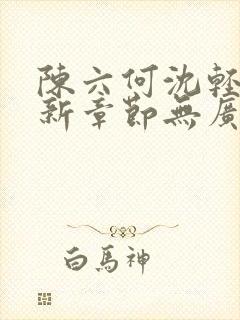 陳六何沈輕
新章節無廣
白馬神